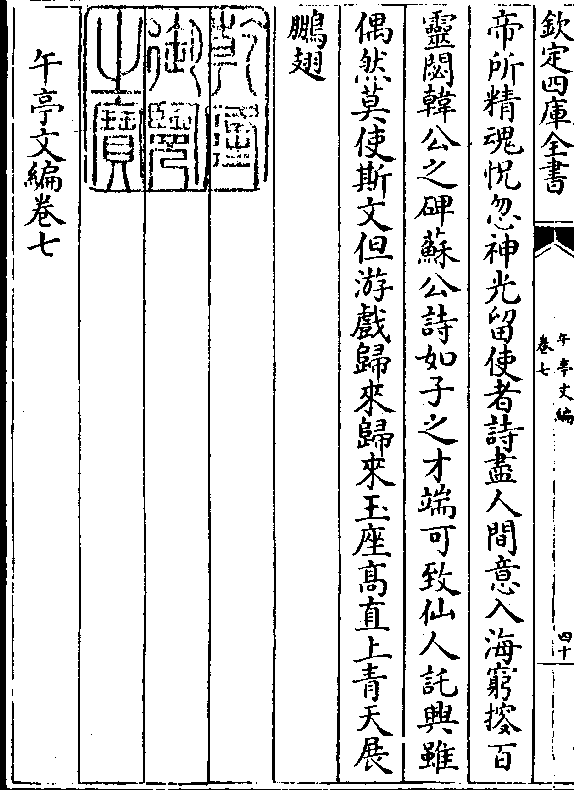 欽定四庫全書
午亭文編
卷七
四十
帝所精魂怳忽神光留使者詩盡人間意入海窮搜百
靈閟韓公之碑蘇公詩如子之才端可致仙人託興雖
偶然莫使斯文但游戲歸來歸來玉座高直上青天展
鵬翅
乾隆
御覽
之寶
午亭文編卷七